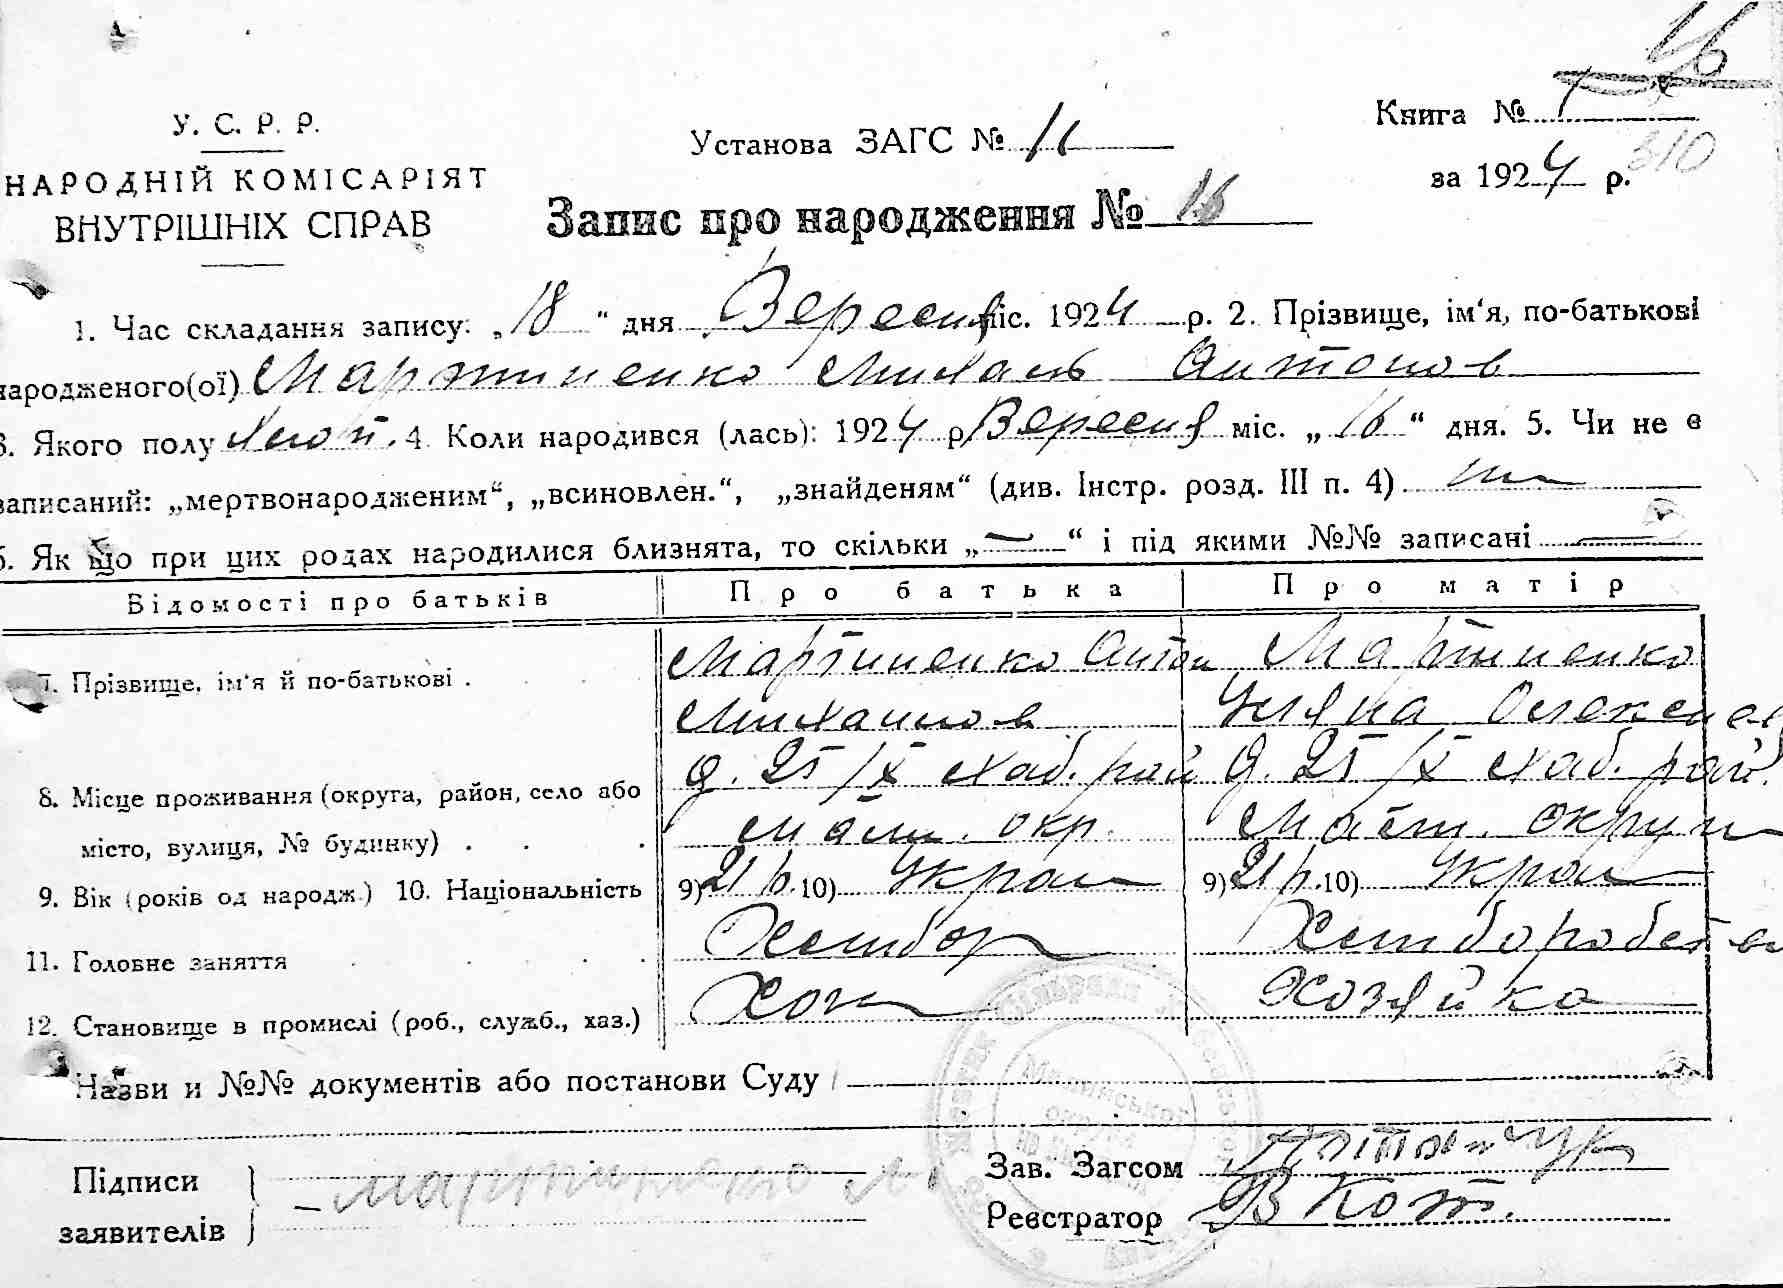 16
У. С. Р. Р.
НАРОДНІЙ КОМІСАРІЯТ
ВНУТРІШНІХ СПРАВ
Установа ЗАГС № 11
Книга № 1
за 1924 р.
310
Запис про народження № 16
1. Час складання запису: „18“ дня Вересня міс. 1924 р. 2. Прізвище, ім‘я, по-батькові
народженого(ої) Мартиненко Михаль Антонов
3. Якого полу хлоп. 4. Коли народився (лась): 1924 р. Вересня міс. „16“ дня. 5. Чи не є
записаний: „мертвонародженим“, „всиновлен.“, „знайденям“ (див. Інстр. розд. III п. 4)
6. Як що при цих родах народилися близнята, то скільки „—“ і під якими №№ записані —
Відомості про батьків Про батька Про матір
7. Прізвище, ім‘я й по-батькові . Мартиненко Антон Мартиненко
Михайлов Уляна Олексієв
8. Місце проживання (округа, район, село або
місто, вулиця, № будинку) . . .
окр. округи
9. Вік (років од народж.) 10. Національність 9) 21 р. 10) Украї 9) 21 р. 10) Украї
11. Головне заняття Хлібор Хліборобств
12. Становище в промислі (роб., служб., хаз.) Хоз Хозяйка
Назви и №№ документів або постанови Суду
Підписи
заявителів
Мартиненко
Зав. Загсом
Реєстратор В Кот.